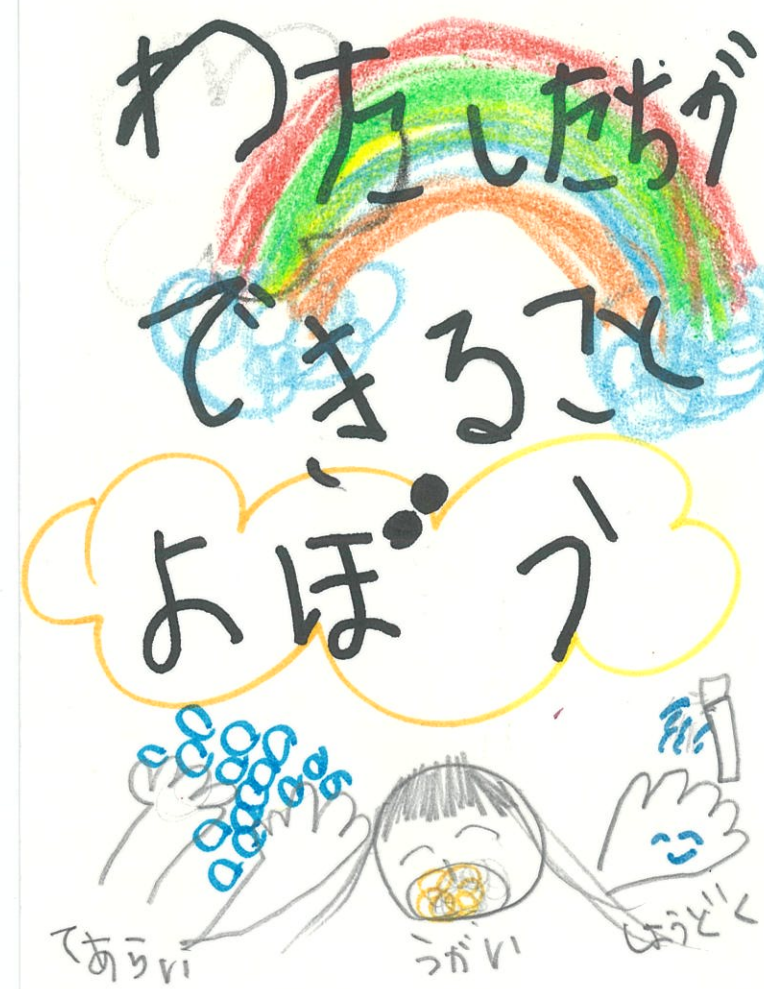 わたしたちが
できること
よぼう
てあらい
うがい
しょうどく